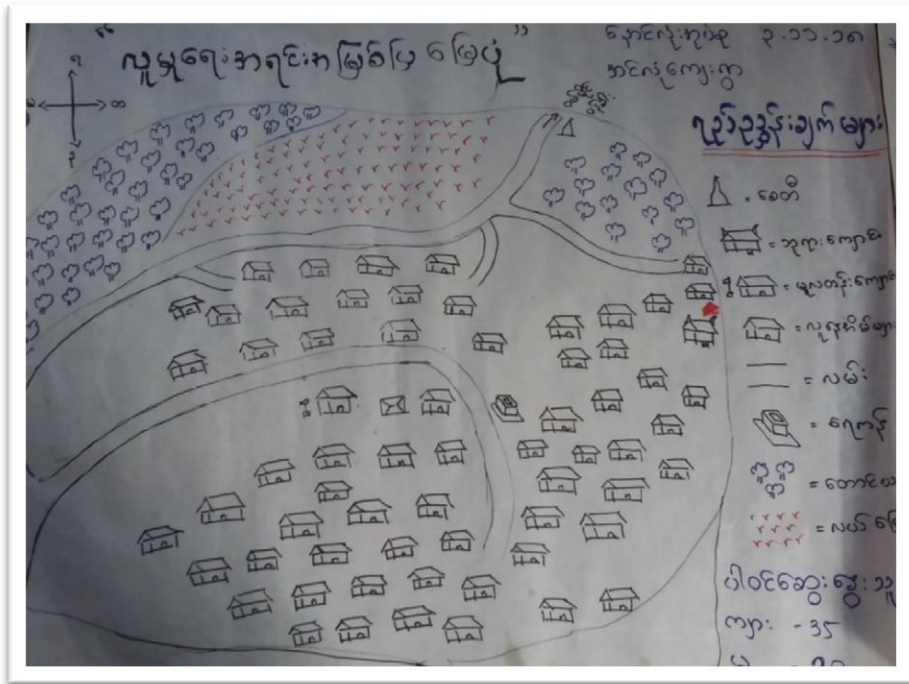 "လူမှုရေးအရင်းအမြစ်ပြမြေပုံ"
၃.၁၁.၁၈
အင်လုံကျေးရွာ
ည
ရည်ညွှန်းချက်များ
= စေတီ
= ဘုရားကျောင်း
= မူလတန်းကျောင်း
= လူနေအိမ်များ
= လမ်း
= ရေကန်
= တောင်ယာ
= လယ်မြေ
ပါဝင်ဆွေးနွေးသူ
ကျား - ၃၅
မ